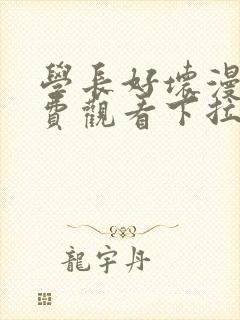 學長好壞漫
費觀看下拉
龍宇丹